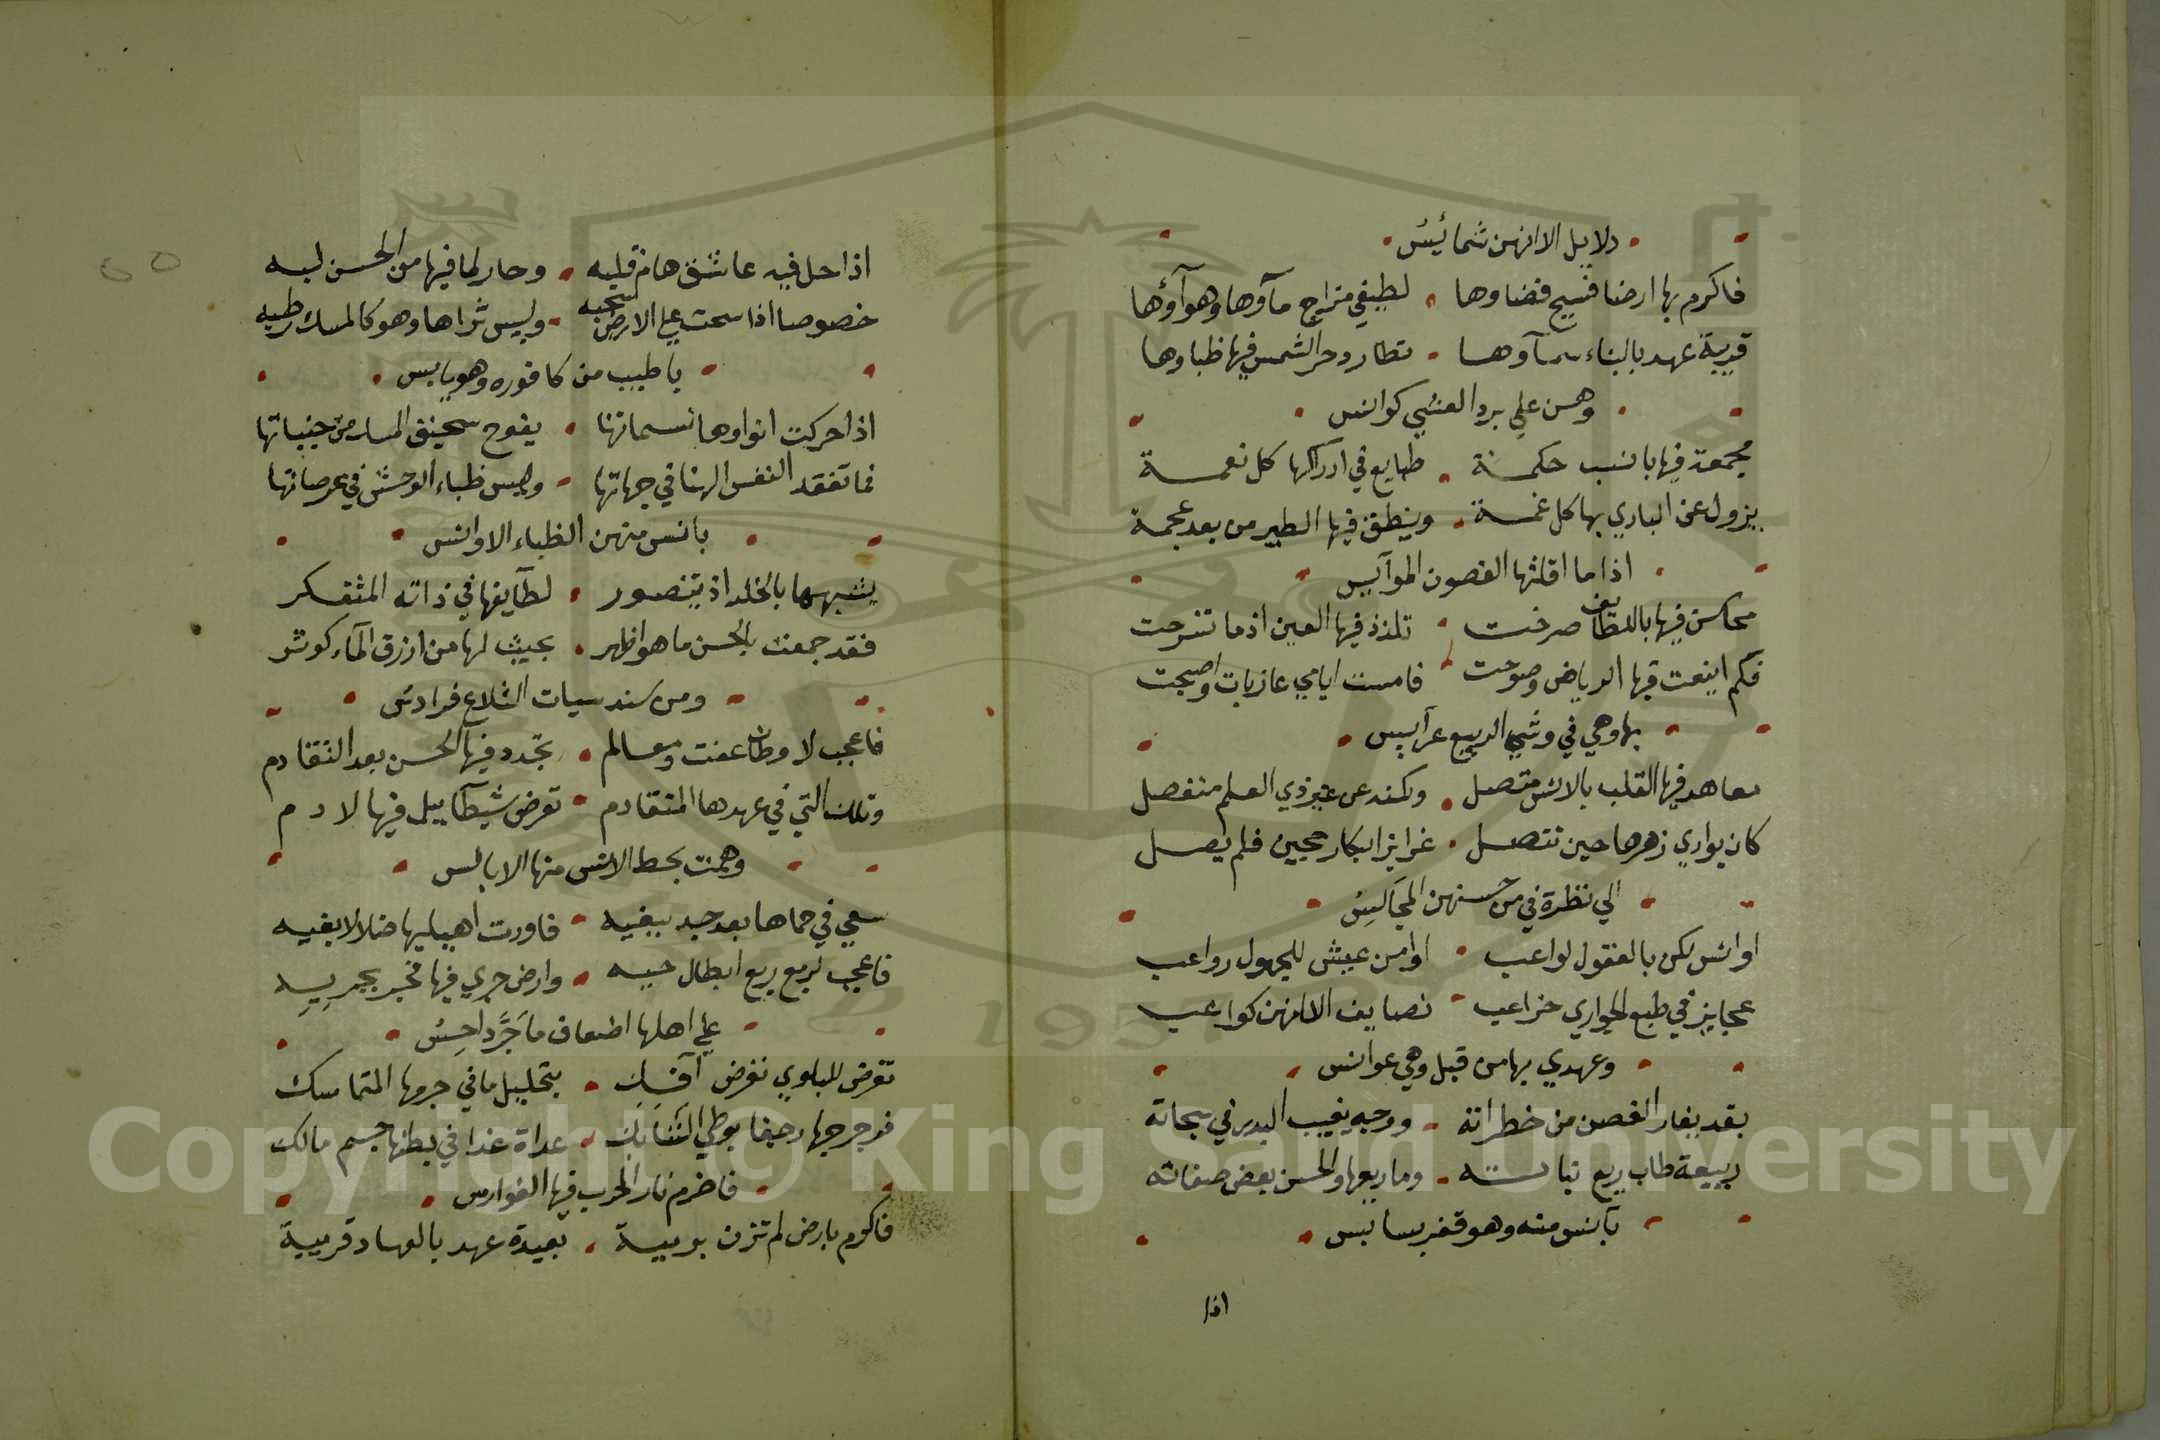 دلايل الا انهن شمائيس
فاكرم بها ارضا فسيح فضاوها لطيفي مزاج مآوها وهوآؤها
قريبة عهد بالبناء سمآوها تطارد حر الشمس فيها ظباوها
وهن علي برد العشي كوانس
مجمعة فيها بانسب حكمة طبايع في ادراكها كل نعمة
يزول عن الباري بها كل غمة وينطق فيها الطير من بعد عجمة
اذا ما اقلتها الغصون الموآيس
محاسن فيها باللطايف صرحت تلذذ فيها العين اذ ما تسرحت
فكم اينعت فيها الرياض وصوحت فامست ايامي عازبات واصبحت
بها وهي في وشي الربيع عرآيس
معاهد فيها القلب بالانس متصل ولكنه عن غير ذي العلم منفصل
كان يواري زهرها حين تتصل غرايز ابكار حجبن فلم يصل
الي نظرة في من حسنهن المجالس
اوانس لكن بالعقول لواعب اوامن عيش للجهول رواعب
عجايز في طبع الجواري خراعب نصايف الا انهن كواعب
وعهدي بها من قبل وهي عوانس
بقد يغار الغصن من خطراته ووجه يغيب البدر في سبحاته
ربيعة طاب ريع نباته وما ربعها والحسن بعض صفاته
بآنس منه وهو قفر بسابس
اذا
اذا حل فيه عاشق هام قلبه وحار لما فيها من الحسن لبه
خصوصا اذا سحت علي الارض سحبه وليس ثراها وهو كالمسك رطبه
باطيب من كافوره وهو يابس
اذا حركت انواوها نسماتها يفوح سحيق المسك من جنباتها
فما تفقد النفس الهنا في جهاتها وليس ظباء الوحش في عرصاتها
بانس منهن الظباء الاوانس
يشبهها بالخلد اذ يتصور لطآيفها في ذاته المتفكر
فقد جمعت بالحسن ما هو اظهر بحيث لها من ازرق المآء كوثر
ومن سندسيات التلاع فرادس
فاعجب لاوطان عفت ومعالم تجدد فيها الحسن بعد التقادم
وتلك التي في عهدها المتقادم تعرض شيطآ بيل فيها لادم
وهمت بحط الانس منها الابالس
سعي في حماها بعد جد ببغيه فاورت اهبليها ضلالا بغيه
فاعجب لربع ريع ابطال حيه وارض جري فيها مخبر بجريه
علي اهلها اضعاف ما جرداحس
تعرض للبلوي تعرض آفك بتحليل ما في جرمها المتماسك
فدجرجها رحفا بوطي السنابك غداة غدا في بطنها جسم مالك
فاضرم نار الحرب فيها الفوارس
فاكرم بارض لم تزن بوبية بعيدة عهد بالعهاد قريبة
Copyright © King Saud University
1957